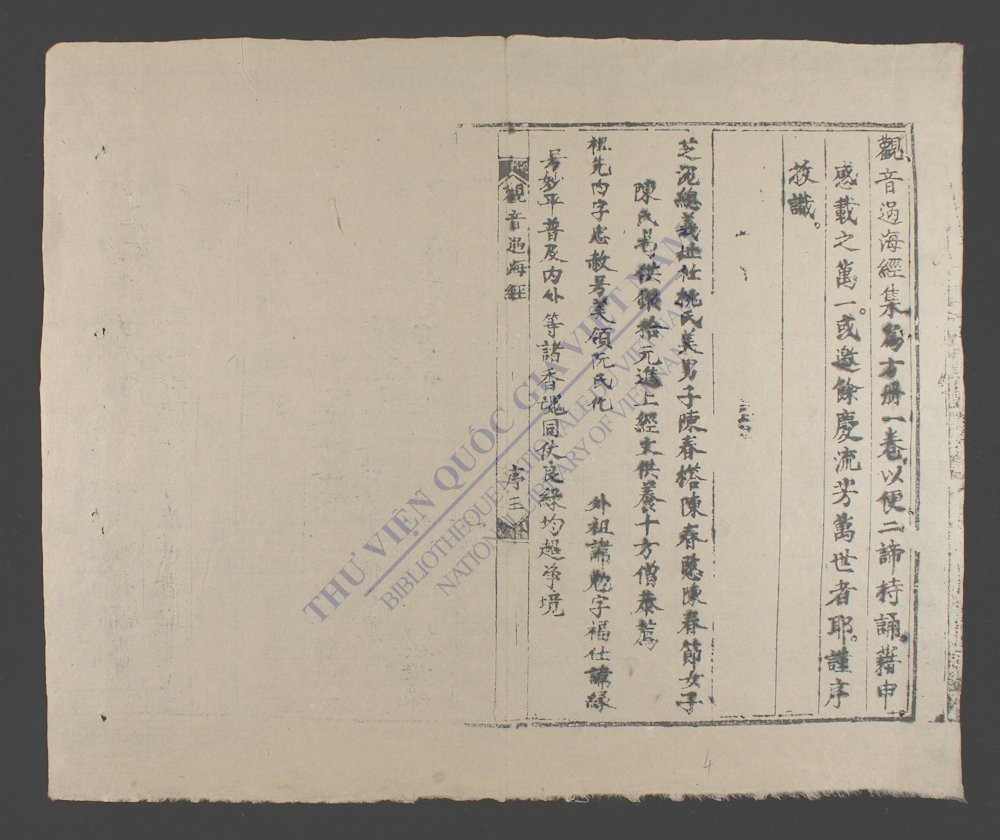 觀音過海經集爲方册一卷以便二諦持誦藉申
感載之萬一。或邀餘慶流芳萬世者耶。謹序
拔讖。
芝泥總義址社桃氏美男子陳春榙陳春慇陳春節女子
陳氏 供銀拾元進上經文供養十方僧恭薦
祖先內字忠赦号美領阮氏化 外祖諱勉字福仕諱緣
号妙平普及內外等諸香魂同伏良緣均超淨境
觀音過海經 序三
THƯ VIỆN QUỐC GIA VIỆT NAM
BIBLIOTHÈQUE NATIONALE DU VIETNAM
NATIONAL LIBRARY OF VIETNAM
4